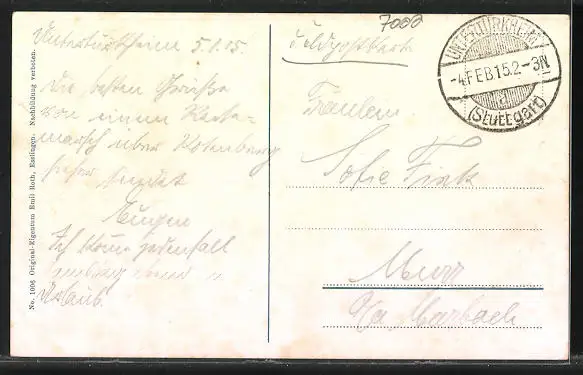 7000
Untertürkheim 5.1.15.
Feldpostkarte
UNTERTÜRKHEIM
-4.FEB 15.2-3N.
(Stuttgart)
Die besten Grüße
von einem Reise-
marsch über Rotenberg
sendet
Eugen
Ich komme jedenfall
Urlaub.
Fräulein
Sofie Fink
Murr
O/a Marbach
No. 1006 Original-Eigentum Emil Roth, Esslingen. Nachbildung verboten.